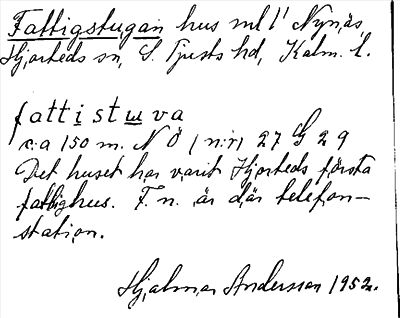 Fattigstugan hus nll 1¹ Nynäs,
Hjorteds sn, S. Tjusts hd, Kalm. l.
fattistuva
c:a 150 m. N Ö (n:r) 27 G 29
Det huset har varit Hjorteds första
fattighus. F. n. är där telefon-
station.
Hjalmar Andersson 1952.